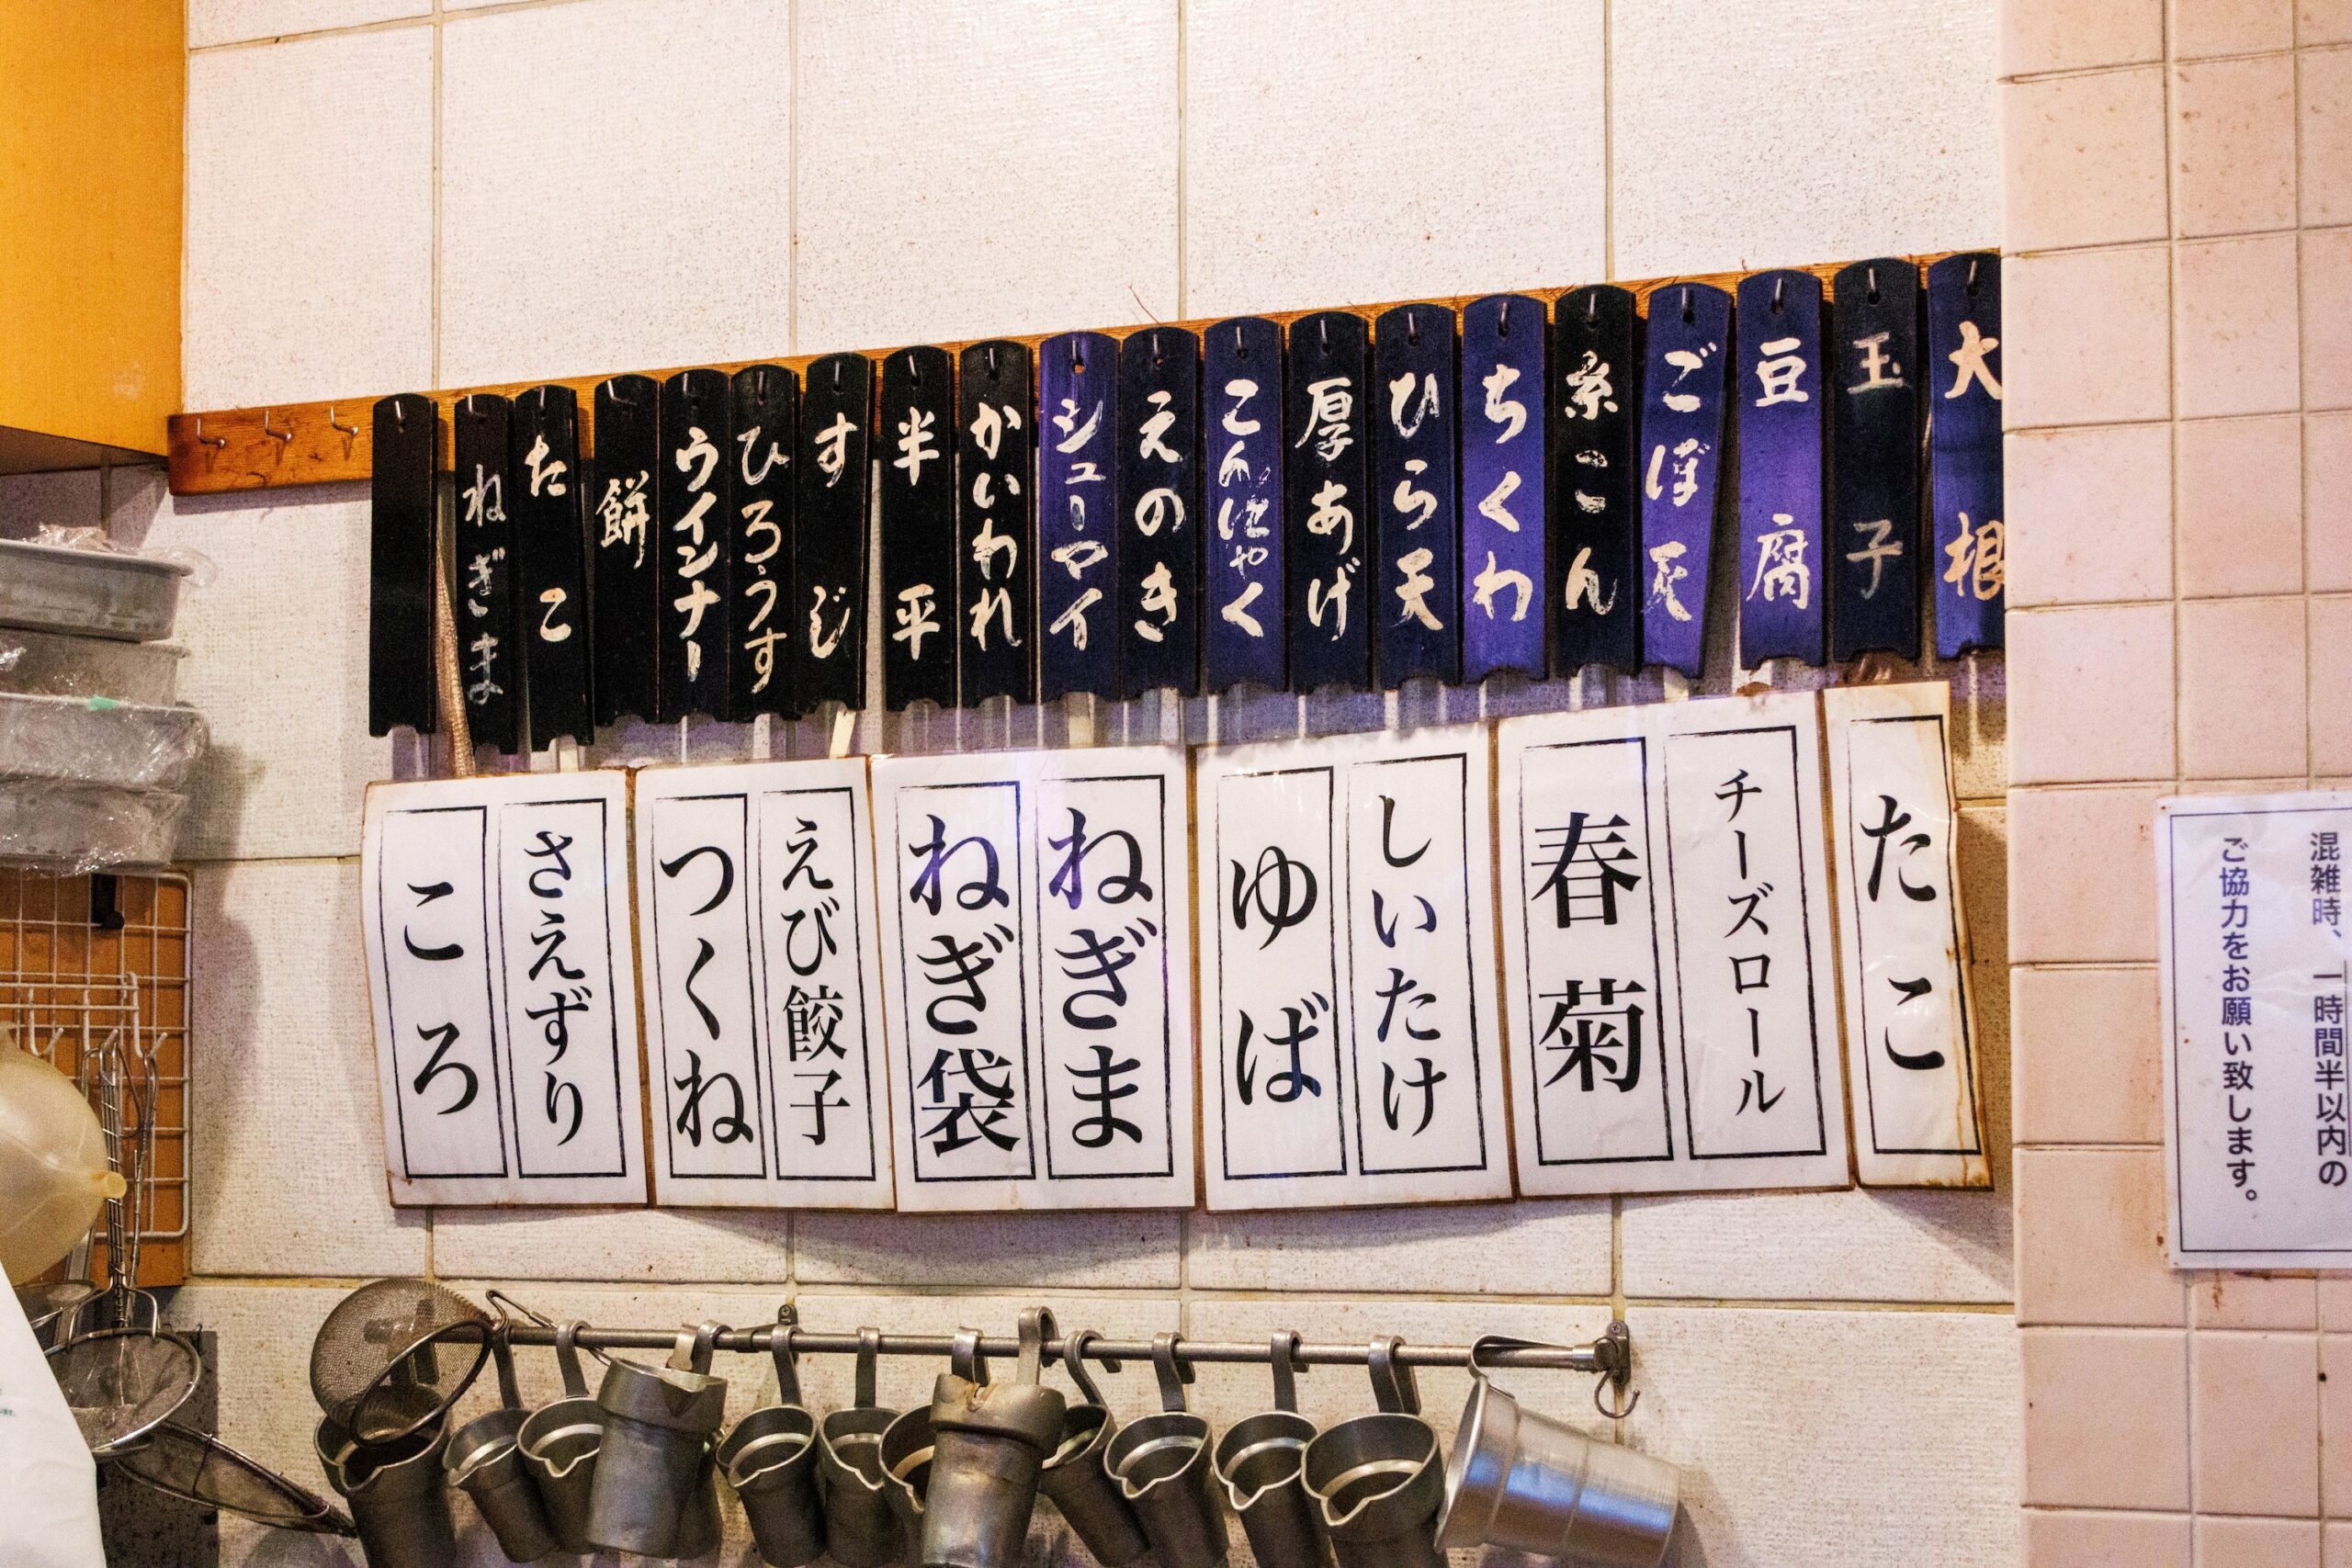 大根
玉子
豆腐
ごぼ天
糸こん
ちくわ
ひら天
厚あげ
こんにゃく
えのき
シューマイ
かいわれ
半平
すじ
ひろうす
ウインナー
餅
たこ
ねぎま
たこ
チーズロール
春菊
しいたけ
ゆば
ねぎま
ねぎ袋
えび餃子
つくね
さえずり
ころ
混雑時、一時間半以内の
ご協力をお願い致します。